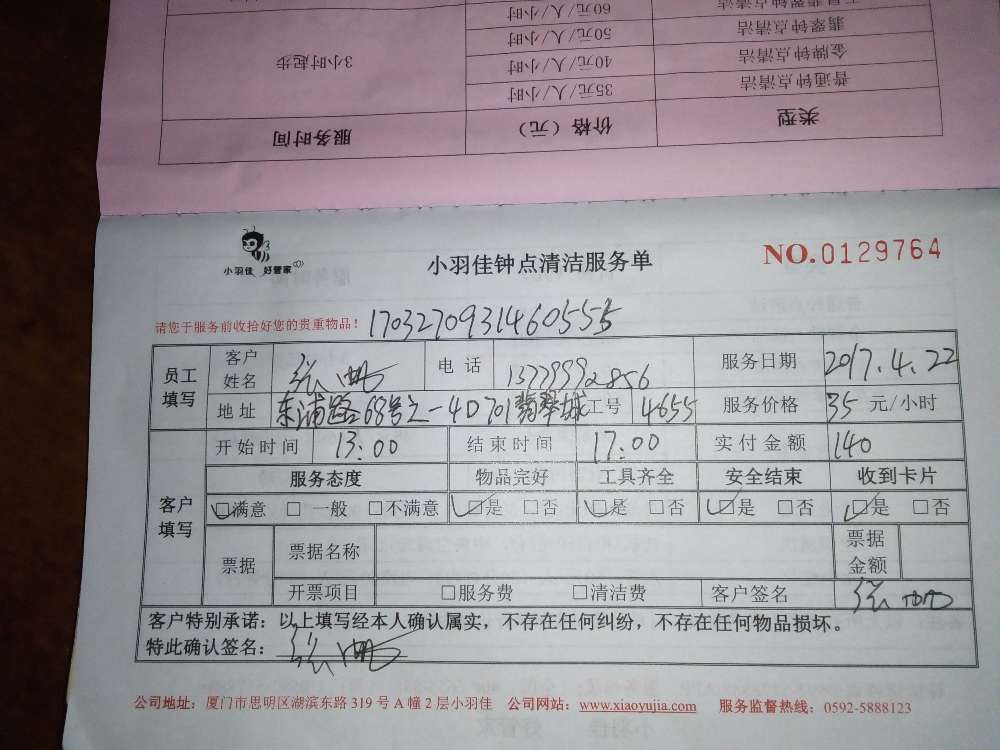 五星翡翠钟点清洁 60元/人/小时
翡翠钟点清洁 50元/人/小时
金牌钟点清洁 40元/人/小时
普通钟点清洁 35元/人/小时
3小时起步
类型 价格（元） 服务时间
小羽佳 好管家
小羽佳钟点清洁服务单
NO.0129764
请您于服务前收拾好您的贵重物品！
员工填写 客户姓名 张 电话 13779992856 服务日期 2017.4.22
地址 东浦路68号之一4D701翡翠城 工号 4655 服务价格 35 元/小时
客户填写 开始时间 13:00 结束时间 17:00 实付金额 140
服务态度 物品完好 工具齐全 安全结束 收到卡片
☑满意 □ 一般 □不满意 ☑是 □否 ☑是 □否 ☑是 □否 ☑是 □否
票据 票据名称 票据金额
开票项目 □服务费 □清洁费 客户签名 张
客户特别承诺：以上填写经本人确认属实，不存在任何纠纷，不存在任何物品损坏。
特此确认签名： 张
公司地址：厦门市思明区湖滨东路 319 号 A 幢 2 层小羽佳 公司网站：www.xiaoyujia.com 服务监督热线：0592-5888123